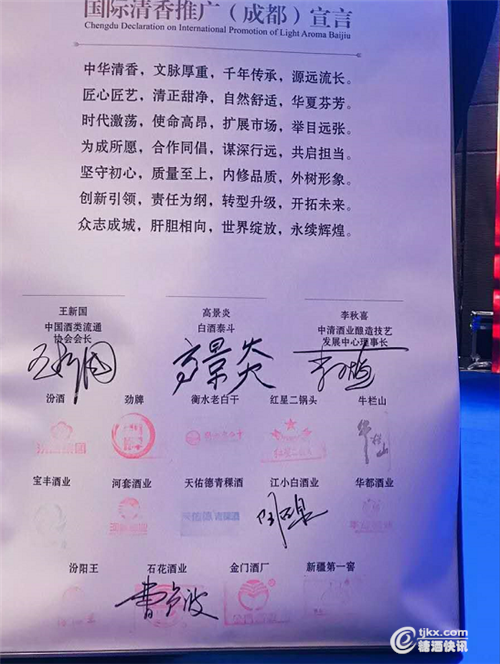 国际清香推广（成都）宣言
Chengdu Declaration on International Promotion of Light Aroma Baijiu
中华清香，文脉厚重，千年传承，源远流长。
匠心匠艺，清正甜净，自然舒适，华夏芬芳。
时代激荡，使命高昂，扩展市场，举目远张。
为成所愿，合作同倡，谋深行远，共启担当。
坚守初心，质量至上，内修品质，外树形象。
创新引领，责任为纲，转型升级，开拓未来。
众志成城，肝胆相向，世界绽放，永续辉煌。
王新国 高景炎 李秋喜
中国酒类流通 白酒泰斗 中清酒业酿造技艺
协会会长 发展中心理事长
王新国 高景炎 李秋喜
汾酒 劲牌 衡水老白干 红星二锅头 牛栏山
牛栏山
宝丰酒业 河套酒业 天佑德青稞酒 江小白酒业 华都酒业
天佑德 青稞酒
汾阳王 石花酒业 金门酒厂 新疆第一窖
曹卫波
tjkx.com
糖酒快讯